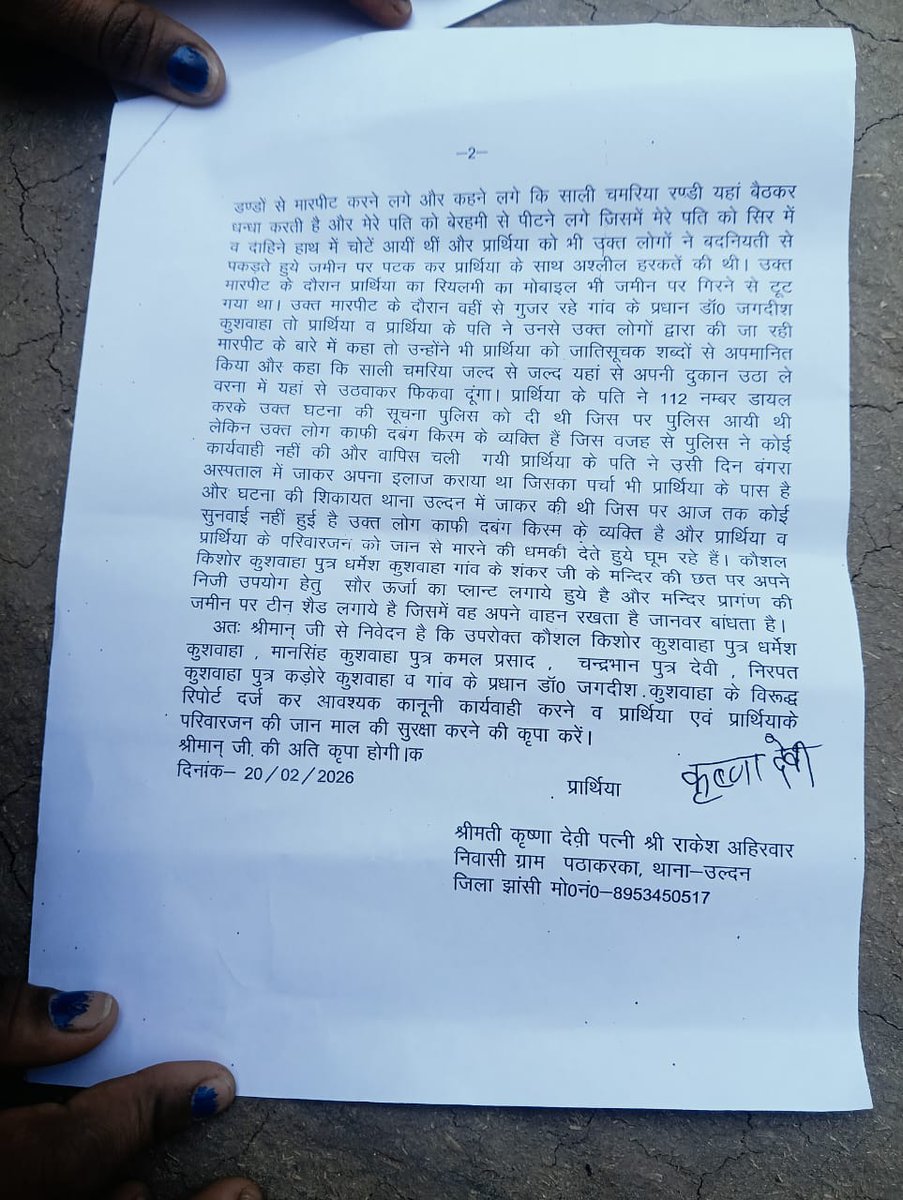 –2–
डण्डों से मारपीट करने लगे और कहने लगे कि साली चमरिया रण्डी यहां बैठकर
धन्धा करती है और मेरे पति को बेरहमी से पीटने लगे जिसमें मेरे पति को सिर में
व दाहिने हाथ में चोटें आयीं थीं और प्रार्थिया को भी उक्त लोगों ने बदनियती से
पकड़ते हुये जमीन पर पटक कर प्रार्थिया के साथ अश्लील हरकतें की थी। उक्त
मारपीट के दौरान प्रार्थिया का रियलमी का मोबाइल भी जमीन पर गिरने से टूट
गया था। उक्त मारपीट के दौरान वहीं से गुजर रहे गांव के प्रधान डॉ0 जगदीश
कुशवाहा तो प्रार्थिया व प्रार्थिया के पति ने उनसे उक्त लोगों द्वारा की जा रही
मारपीट के बारे में कहा तो उन्होंने भी प्रार्थिया को जातिसूचक शब्दों से अपमानित
किया और कहा कि साली चमरिया जल्द से जल्द यहां से अपनी दुकान उठा ले
वरना में यहां से उठवाकर फिकवा दूंगा। प्रार्थिया के पति ने 112 नम्बर डायल
करके उक्त घटना की सूचना पुलिस को दी थी जिस पर पुलिस आयी थी
लेकिन उक्त लोग काफी दबंग किस्म के व्यक्ति हैं जिस वजह से पुलिस ने कोई
कार्यवाही नहीं की और वापिस चली गयी प्रार्थिया के पति ने उसी दिन बंगरा
अस्पताल में जाकर अपना इलाज कराया था जिसका पर्चा भी प्रार्थिया के पास है
और घटना की शिकायत थाना उल्दन में जाकर की थी जिस पर आज तक कोई
सुनवाई नहीं हुई है उक्त लोग काफी दबंग किस्म के व्यक्ति है और प्रार्थिया व
प्रार्थिया के परिवारजन को जान से मारने की धमकी देते हुये घूम रहे हैं। कौशल
किशोर कुशवाहा पुत्र धर्मेश कुशवाहा गांव के शंकर जी के मन्दिर की छत पर अपने
निजी उपयोग हेतु सौर ऊर्जा का प्लान्ट लगाये हुये है और मन्दिर प्रागंण की
जमीन पर टीन शैड लगाये है जिसमें वह अपने वाहन रखता है जानवर बांधता है।
अतः श्रीमान् जी से निवेदन है कि उपरोक्त कौशल किशोर कुशवाहा पुत्र धर्मेश
कुशवाहा , मानसिंह कुशवाहा पुत्र कमल प्रसाद , चन्द्रभान पुत्र देवी , निरपत
कुशवाहा पुत्र कड़ोरे कुशवाहा व गांव के प्रधान डॉ0 जगदीश कुशवाहा के विरूद्ध
रिपोर्ट दर्ज कर आवश्यक कानूनी कार्यवाही करने व प्रार्थिया एवं प्रार्थियाके
परिवारजन की जान माल की सुरक्षा करने की कृपा करें।
श्रीमान् जी की अति कृपा होगी।क
दिनांक– 20/02/2026
प्रार्थिया कृष्णा देवी
श्रीमती कृष्णा देवी पत्नी श्री राकेश अहिरवार
निवासी ग्राम पठाकरका, थाना–उल्दन
जिला झांसी मो0नं0–8953450517